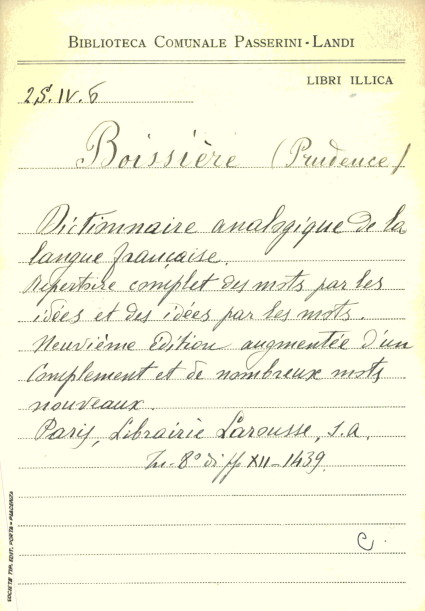 BIBLIOTECA COMUNALE PASSERINI-LANDI
LIBRI ILLICA
2S.IV.6
Boissière (Prudence)
Dictionnaire analogique de la
langue française.
Repertoire complet des mots par les
idées et des idées par les mots.
Neuvième Edition augmentée d'un
Complement et de nombreux mots
nouveaux.
Paris, Librairie Larousse, s.a.
In-8° di pp XII-1439.
C.
SOCIETÀ TIP. EDIT. PORTA - PIACENZA